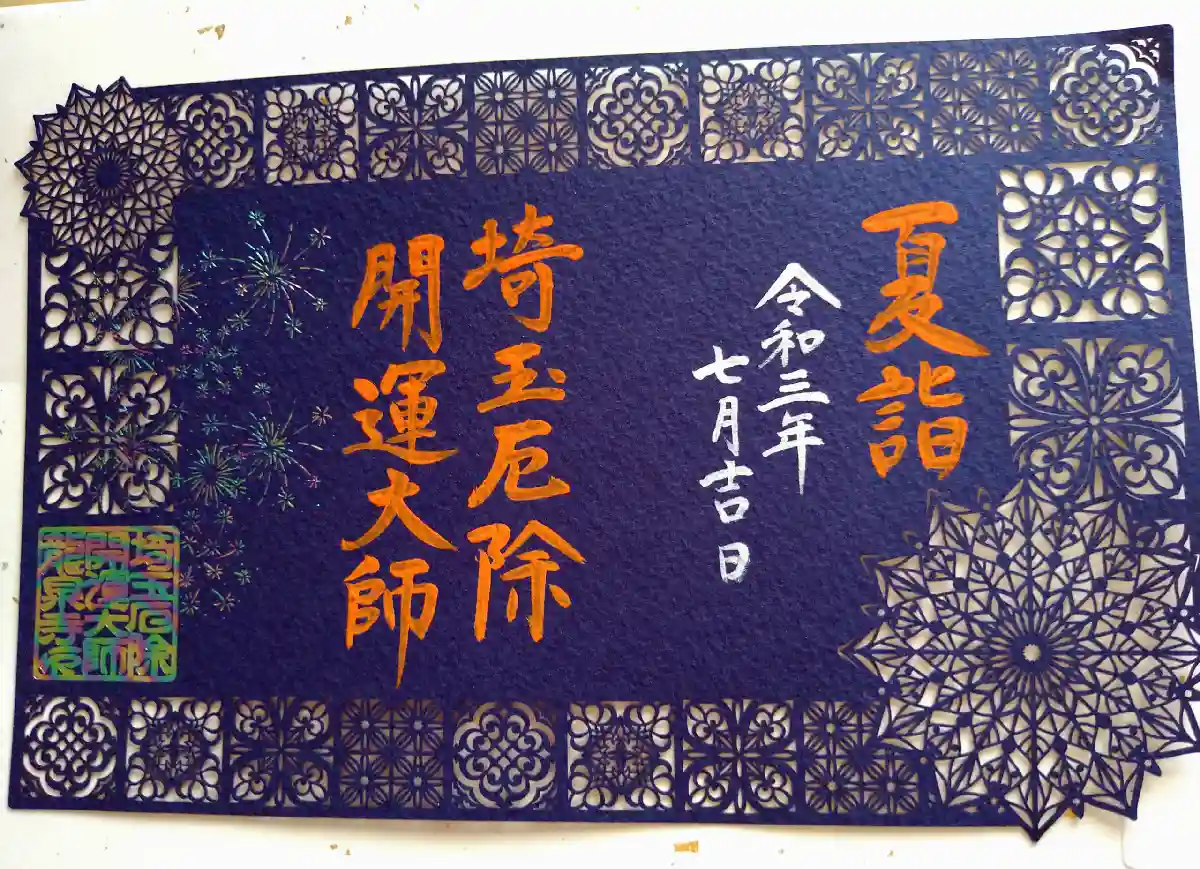 夏詣
令和三年
七月吉日
埼玉厄除
開運大師
埼玉厄除
開運大師
龍泉寺印